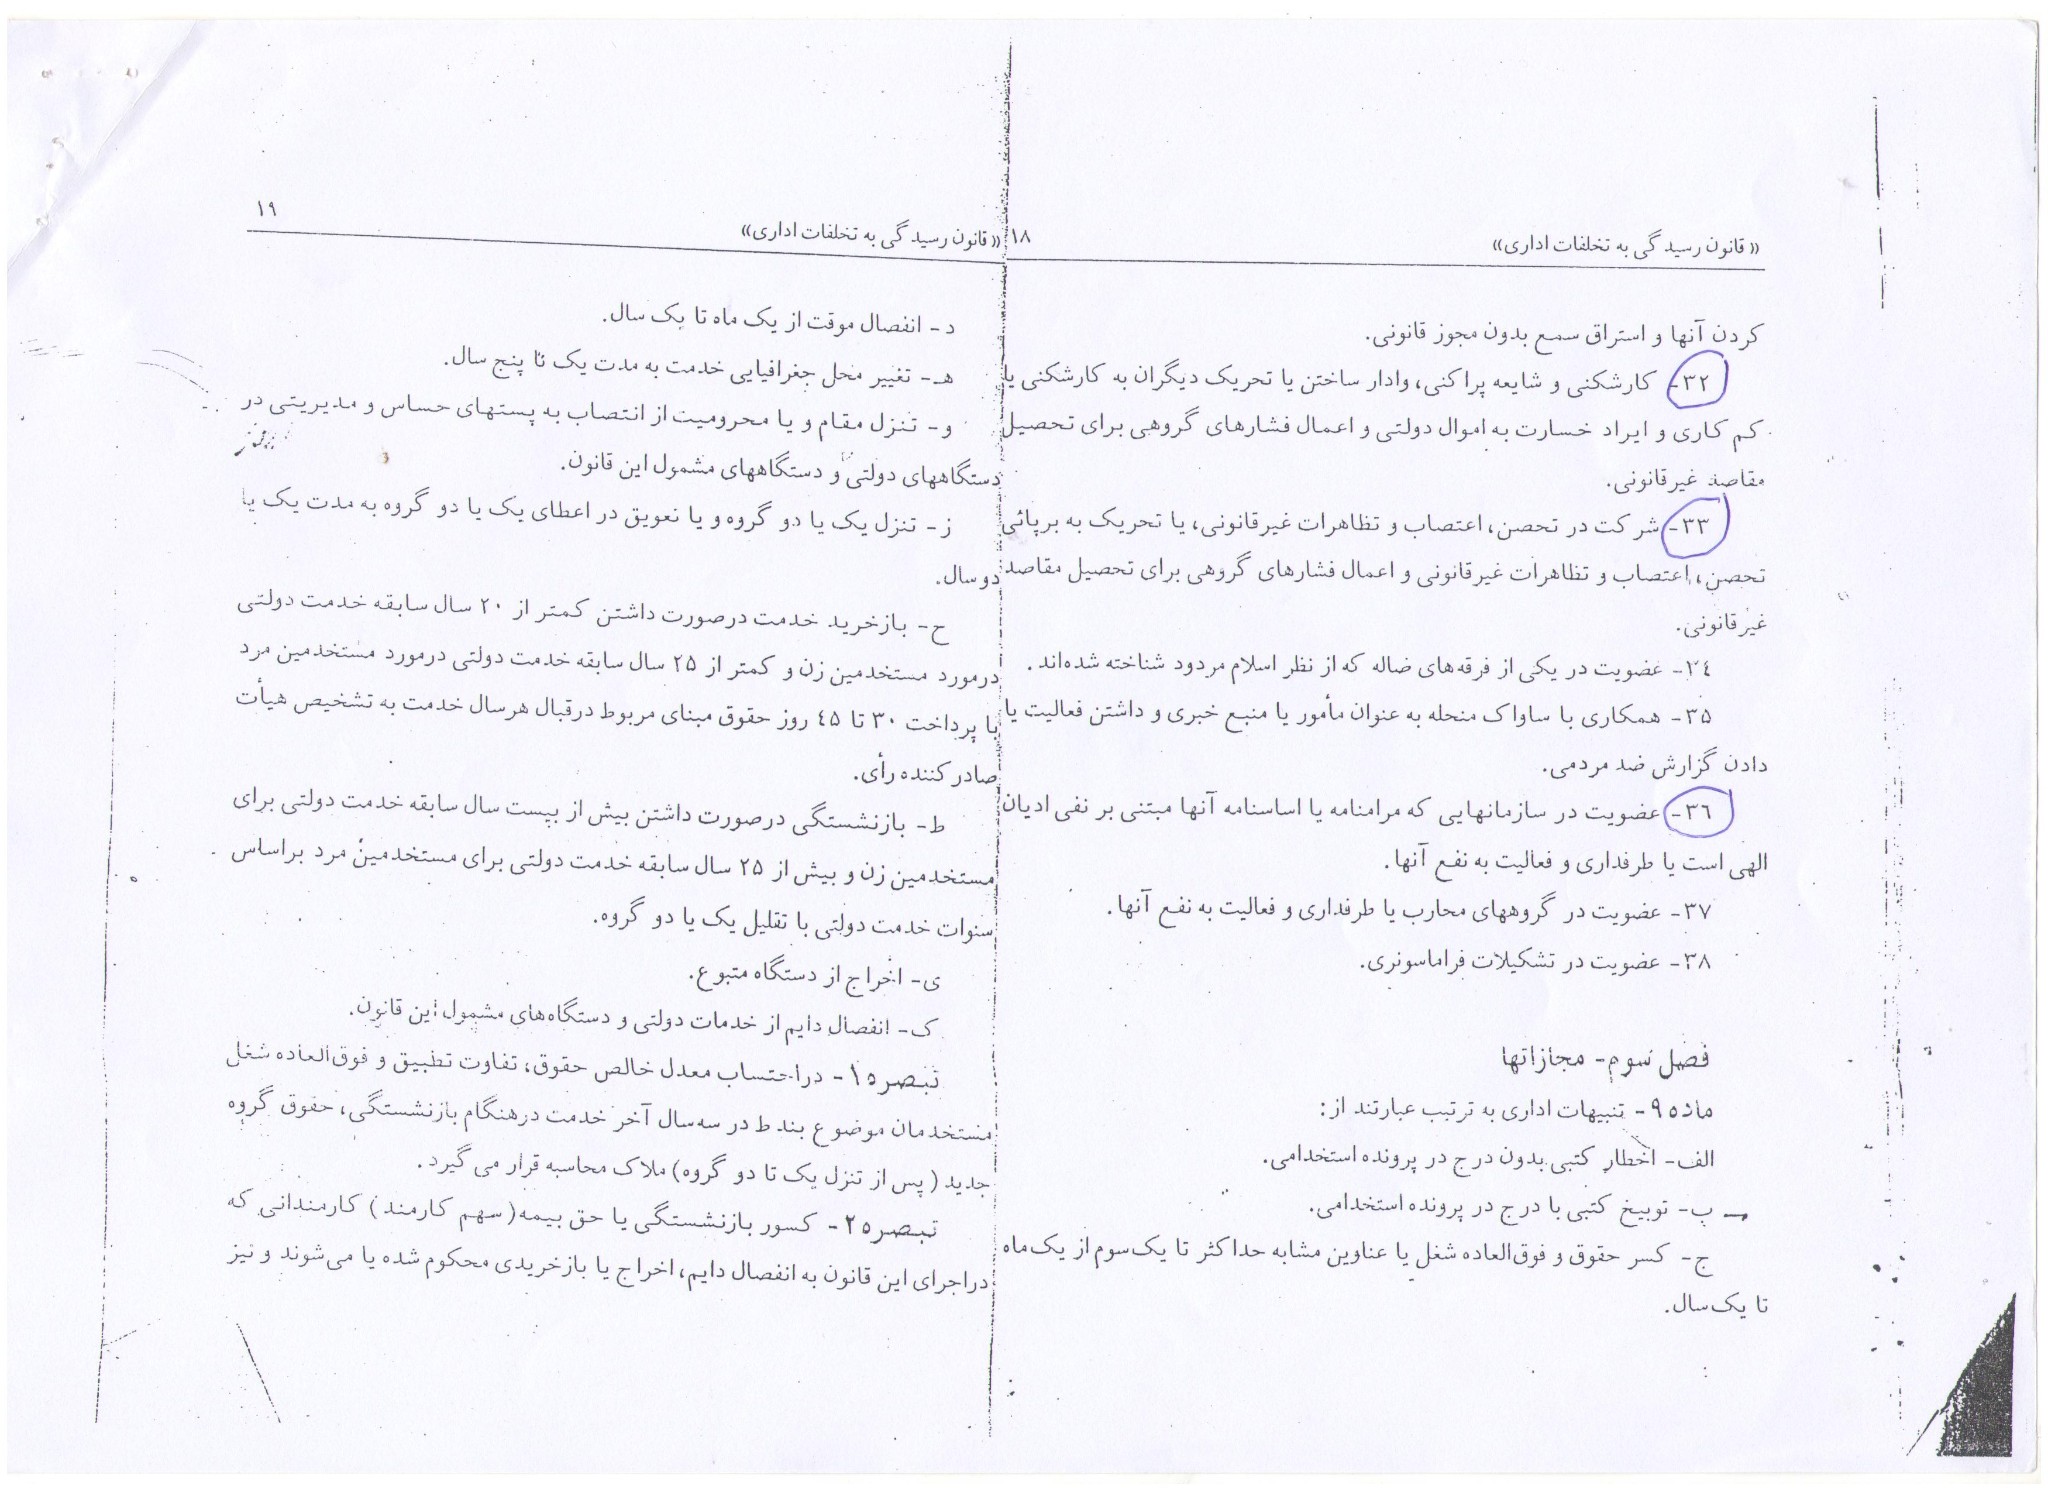 ۱۸
« قانون رسیدگی به تخلفات اداری»
کردن آنها و استراق سمع بدون مجوز قانونی.
۳۲- کارشکنی و شایعه پراکنی، وادار ساختن یا تحریک دیگران به کارشکنی یا
کم کاری و ایراد خسارت به اموال دولتی و اعمال فشارهای گروهی برای تحصیل
مقاصد غیرقانونی.
۳۳- شرکت در تحصن، اعتصاب و تظاهرات غیرقانونی، یا تحریک به برپائی
تحصن، اعتصاب و تظاهرات غیرقانونی و اعمال فشارهای گروهی برای تحصیل مقاصد
غیرقانونی.
۳٤- عضویت در یکی از فرقه‌های ضاله که از نظر اسلام مردود شناخته شده‌اند.
۳۵- همکاری با ساواک منحله به عنوان مأمور یا منبع خبری و داشتن فعالیت یا
دادن گزارش ضد مردمی.
۳٦- عضویت در سازمانهایی که مرامنامه یا اساسنامه آنها مبتنی بر نفی ادیان
الهی است یا طرفداری و فعالیت به نفع آنها.
۳۷- عضویت در گروههای محارب یا طرفداری و فعالیت به نفع آنها.
۳۸- عضویت در تشکیلات فراماسونری.
فصل سوم- مجازاتها
ماده ۹- تنبیهات اداری به ترتب عبارتند از:
الف- اخطار کتبی بدون درج در پرونده استخدامی.
ب- توبیخ کتبی با درج در پرونده استخدامی.
ج- کسر حقوق و فوق‌العاده شغل یا عناوین مشابه حداکثر تا یک‌سوم از یک‌ماه
تا یک‌سال.
« قانون رسیدگی به تخلفات اداری»
۱۹
د- انفصال موقت از یک ماه تا یک سال.
هـ- تغییر محل جغرافیایی خدمت به مدت یک تا پنج سال.
و- تنزل مقام و یا محرومیت از انتصاب به پستهای حساس و مدیریتی در
دستگاههای دولتی و دستگاههای مشمول این قانون.
ز- تنزل یک یا دو گروه و یا تعویق در اعطای یک یا دو گروه به مدت یک یا
دو سال.
ح- بازخرید خدمت درصورت داشتن کمتر از ۲۰ سال سابقه خدمت دولتی
درمورد مستخدمین زن و کمتر از ۲۵ سال سابقه خدمت دولتی درمورد مستخدمین مرد
با پرداخت ۳۰ تا ٤۵ روز حقوق مبنای مربوط درقبال هرسال خدمت به تشخیص هیأت
صادر کننده رأی.
ط- بازنشستگی درصورت داشتن بیش از بیست سال سابقه خدمت دولتی برای
مستخدمین زن و بیش از ۲۵ سال سابقه خدمت دولتی برای مستخدمین مرد براساس
سنوات خدمت دولتی با تقلیل یک یا دو گروه.
ی- اخراج از دستگاه متبوع.
ک- انفصال دایم از خدمات دولتی و دستگاه‌های مشمول این قانون.
تبصره ۱- دراحتساب معدل خالص حقوق، تفاوت تطبیق و فوق‌العاده شغل
مستخدمان موضوع بند ط در سه‌سال آخر خدمت درهنگام بازنشستگی، حقوق گروه
جدید ( پس از تنزل یک تا دو گروه) ملاک محاسبه قرار می گیرد.
تبصره ۲- کسور بازنشستگی یا حق بیمه (سهم کارمند) کارمندانی که
دراجرای این قانون به انفصال دایم، اخراج یا بازخریدی محکوم شده یا می‌شوند و نیز